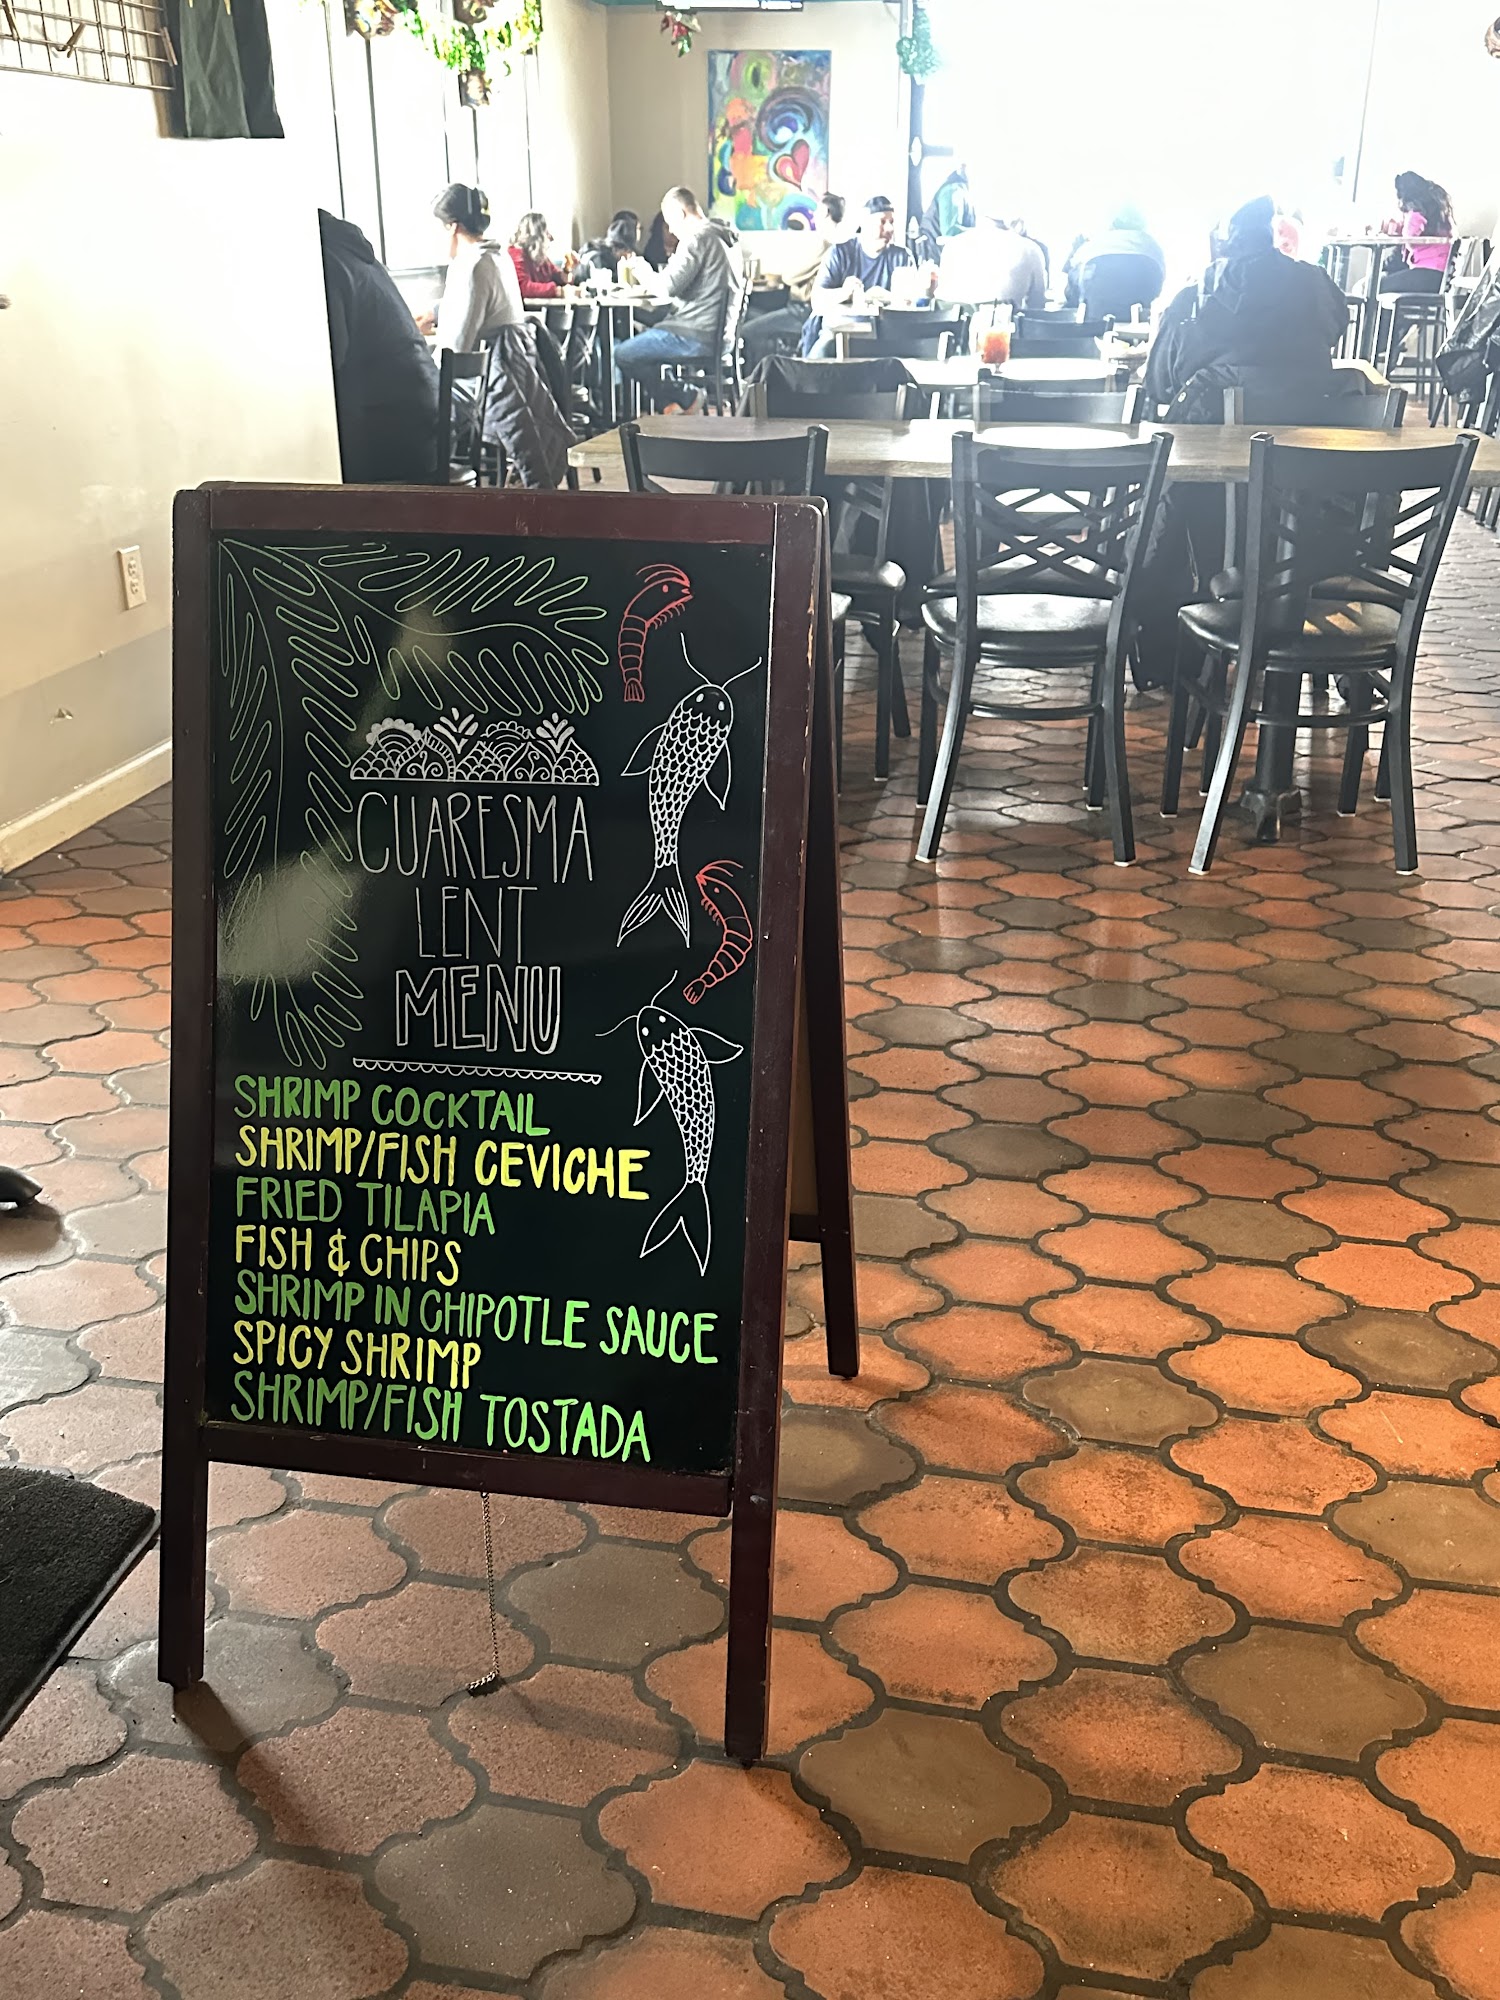 CUARESMA
LENT
MENU
SHRIMP COCKTAIL
SHRIMP/FISH CEVICHE
FRIED TILAPIA
FISH & CHIPS
SHRIMP IN CHIPOTLE SAUCE
SPICY SHRIMP
SHRIMP/FISH TOSTADA